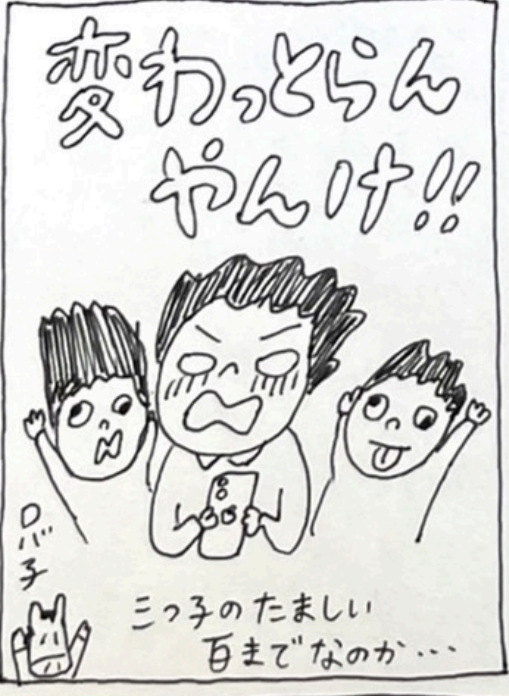 変わっとらん
やんけ!!
ロバ子
三つ子のたましい
百までなのか…